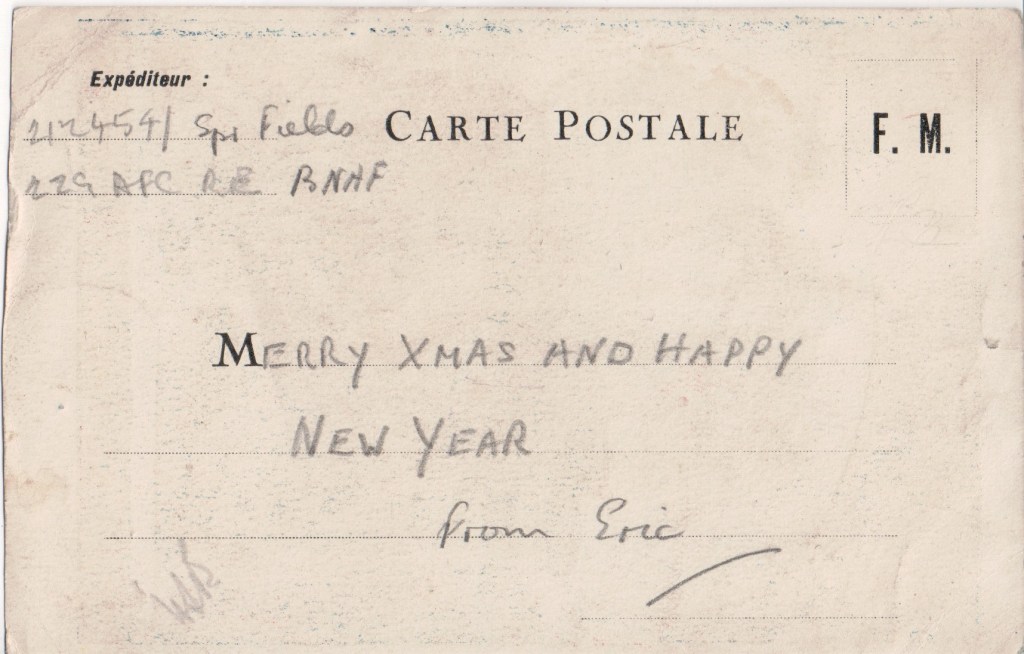 Expéditeur :
2112454/ Spr Fields CARTE POSTALE F. M.
229 RE BNAF
MERRY XMAS AND HAPPY
NEW YEAR
from Eric